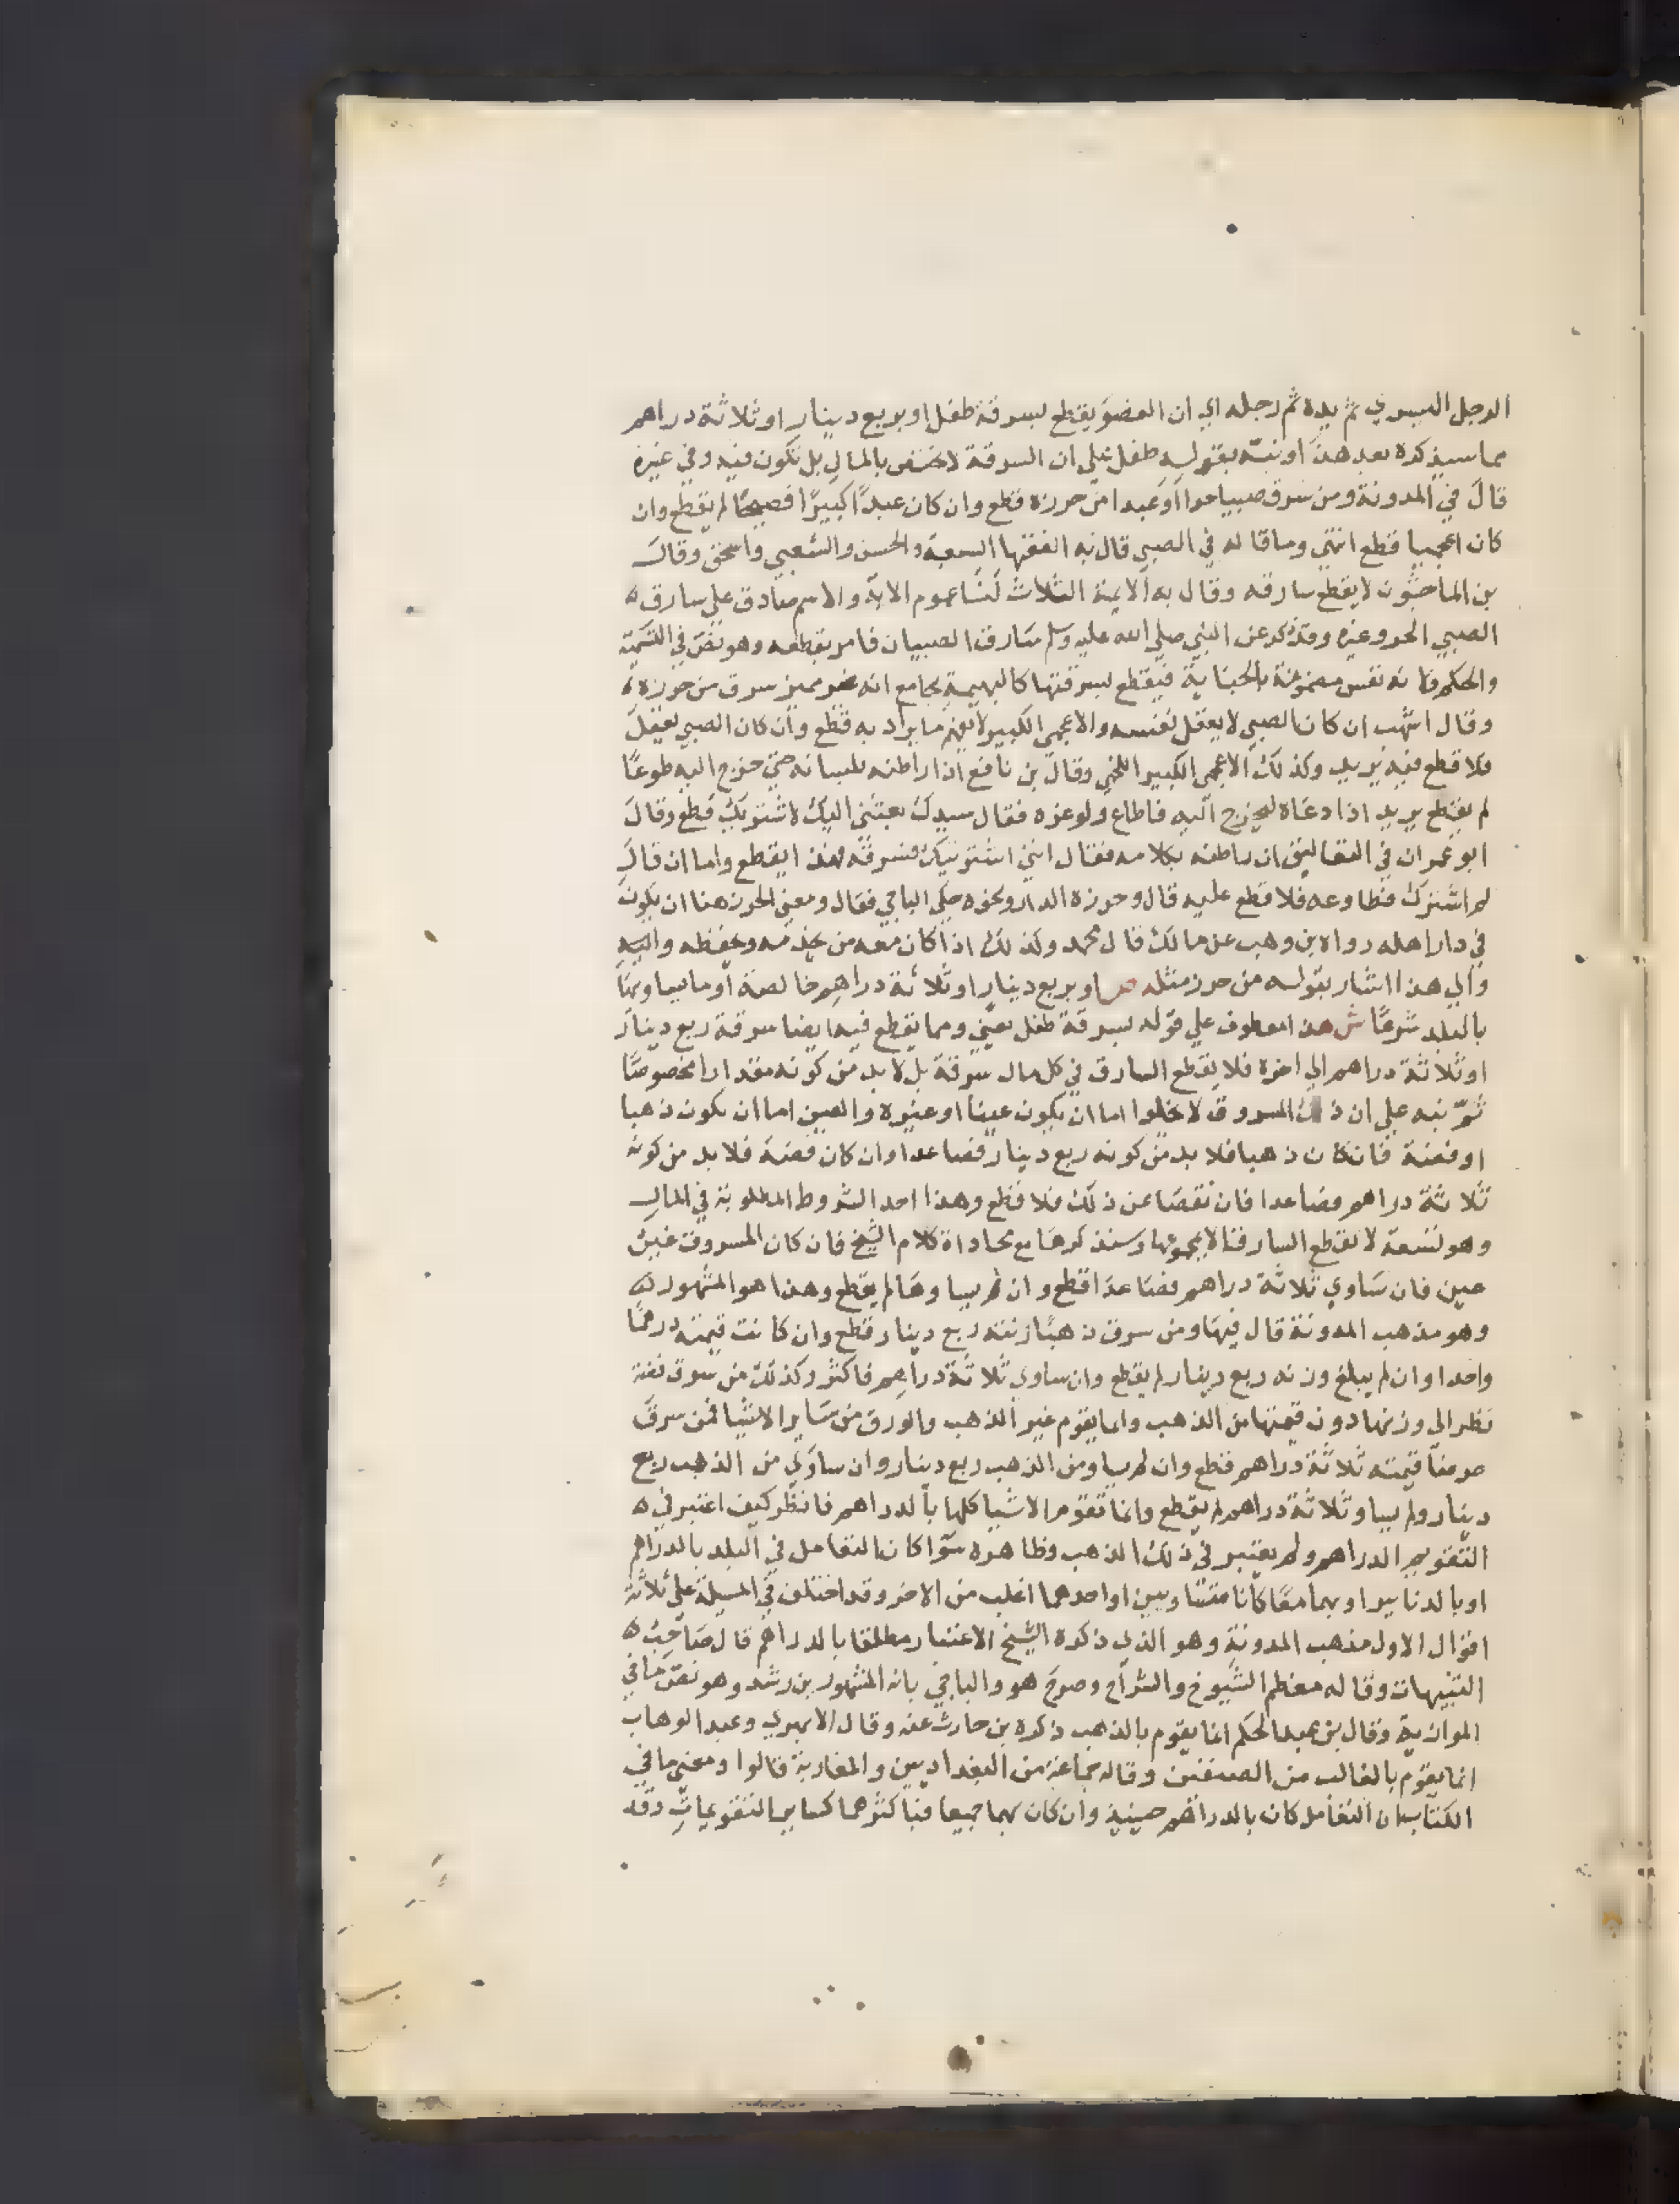 الرجل اليسري ثم يده ثم رجله اي ان العضو يقطع بسرقة طفل او بربع دينار او ثلاثة دراهم
مما سيذكره بعد هذا ونبّه بقوله طفل علي ان السرقة لا تختص بالمال بل تكون فيه وفي غيره
قال في المدونة ومن سرق صبيا حرا او عبدا من حرزه قطع وان كان عبدًا كبيرًا فصيحًا لم يقطع وان
كان اعجميا قطع انتهي وما قاله في الصبي قال به الفقها السبعة والحسن والشعبي واسحق وقال
بن الماجشون لا يقطع سارقه وقال به الايمة الثلاث لنا عموم الاية والاسم صادق علي سارق
الصبي الحر وغيره وقد ذكر عن النبي صلي الله عليه وسلم سارق الصبيان فامر بقطعه وهو نص في التسمية
والحكم فانه نفس مضمونة بالجناية فيقطع بسرقتها كالبهيمة بجامع انه غير مميز سرق من حرزه
وقال اشهب ان كان الصبي لا يعقل نفسه والاعجمي الكبير لا يفهم ما يراد به قطع وان كان الصبي يعقل
فلا قطع فيه يريد وكذلك الاعجمي الكبير اللخمي وقال بن نافع اذا راطنه بلسانه حتي خرج اليه طوعًا
لم يقطع يريد اذا دعاه ليخرج اليه فاطاع ولو غره فقال سيدك بعثني اليك لاشتريك قطع وقال
ابو عمران في التعاليق ان راطنه بكلامه فقال انني اشتريتك فسرقته فهذا يقطع واما ان قال
لم اشترك فطاوعه فلا قطع عليه قال وحرزه الدار ونحوه حكي الباجي فقال ومعني الحرز هنا ان يكون
في دار اهله رواه بن وهب عن مالك قال محمد وكذلك اذا كان معه من يخدمه ويحفظه واليه
والي هذا اشار بقوله من حرز مثله ص او بربع دينار او ثلاثة دراهم خالصة او ما يساويها
بالبلد شرعًا ش هذا معطوف علي قوله بسرقة طفل يعني ومما يقطع فيه ايضا سرقة ربع دينار
او ثلاثة دراهم الي اخره فلا يقطع السارق في كل مال سرقة بل لا بد من كونه مقدارا مخصوصًا
ثمّ نبه علي ان ذلك المسروق لا يخلوا اما ان يكون عينا او غيره والعين اما ان يكون ذهبا
او فضة فان كان ذهبا فلا بد من كونه ربع دينار فصاعدا وان كان فضة فلا بد من كونه
ثلاثة دراهم فصاعدا فان نقصا عن ذلك فلا قطع وهذا احد الشروط المطلوبة في المال
وهو تسعة لا يقطع السارق الا بمجموعها وسنذكرها مع محاداة كلام الشيخ فان كان المسروق غير
عين فان ساوي ثلاثة دراهم فصاعدًا قطع وان لم يساوها لم يقطع وهذا هو المشهور
وهو مذهب المدونة قال فيها ومن سرق ذهبًا زنته ربع دينار قطع وان كانت قيمته درهمًا
واحدا وان لم يبلغ وزنه ربع دينار لم يقطع وان ساوي ثلاثة دراهم فاكثر وكذلك من سرق فضة
نظر الي وزنها دون قيمتها من الذهب وانما يقوم غير الذهب والورق من ساير الاشيا فمن سرق
عرضًا قيمته ثلاثة دراهم قطع وان لم يساو من الذهب ربع دينار وان ساوي من الذهب ربع
دينار ولم يساو ثلاثة دراهم لم يقطع وانما تقوم الاشيا كلها بالدراهم فانظر كيف اعتبر في
التقويم الدراهم ولم يعتبر في ذلك الذهب وظاهره سوا كان التعامل في البلد بالدراهم
او بالدنانير او بهما معًا كانا متساويين او احدهما اغلب من الاخر وقد اختلف في المسيلة علي ثلاثة
اقوال الاول مذهب المدونة وهو الذي ذكره الشيخ الاعتبار مطلقا بالدراهم قال صاحب
التنبيهات وقاله معظم الشيوخ والشراح وصرح هو والباجي بانه المشهور بن رشد وهو نص ما في
الموازية وقال بن عبد الحكم انما يقوم بالذهب ذكره بن حارث عنه وقال الابهري وعبد الوهاب
انما يقوم بالغالب من الصنفين وقاله جماعة من البغداديين والمغاربة قالوا ومعني ما في
الكتاب ان التعامل كان بالدراهم حينيذ وان كان بهما جميعا فباكثرهما كساير التقويمات وقد